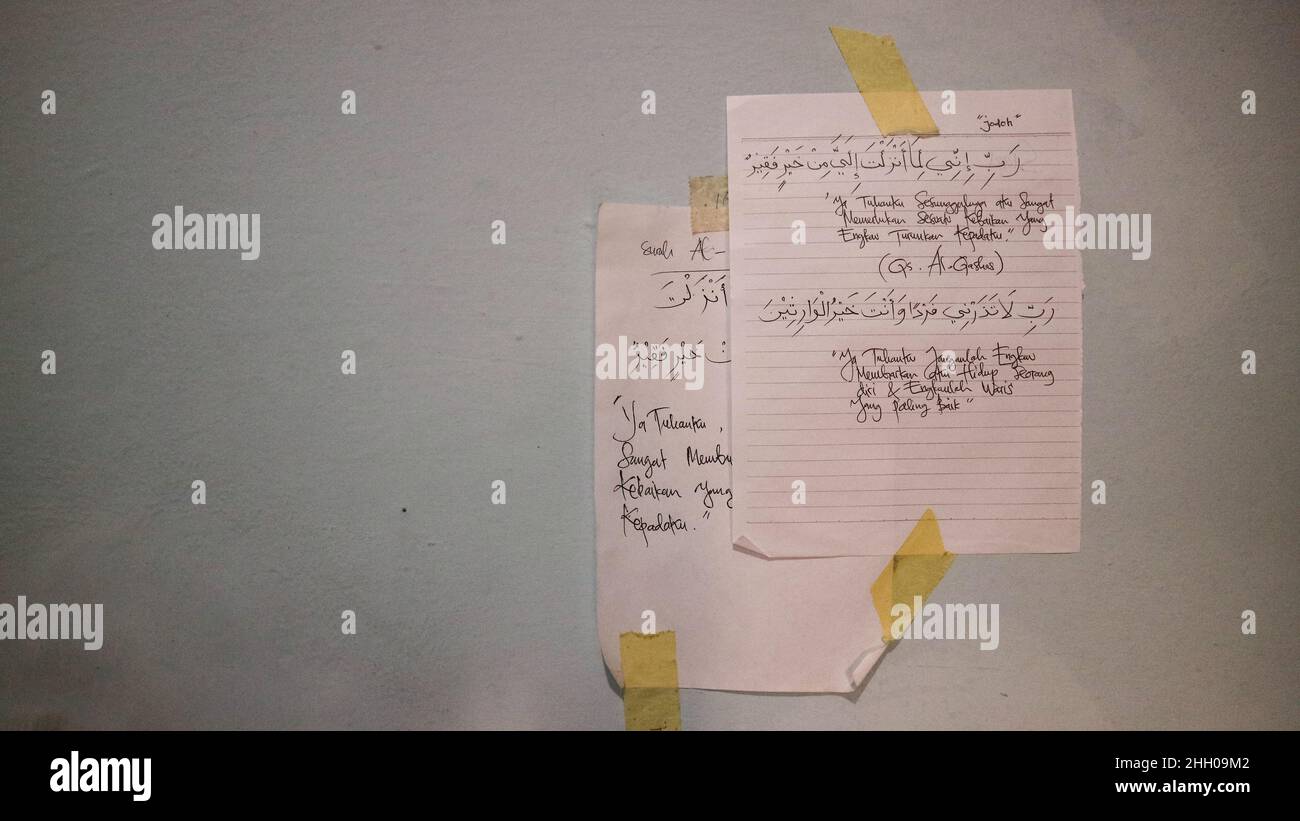 "jodoh"
رَبِّ إِنِّي لِمَا أَنْزَلْتَ إِلَيَّ مِنْ خَيْرٍ فَقِيْرٌ
"Ya Tuhanku Sesungguhnya aku Sangat
Memerlukan Sesuatu Kebaikan Yang
Engkau Turunkan Kepadaku."
(Qs. Al-Qashas)
رَبِّ لَا تَذَرْنِي فَرْدًا وَأَنْتَ خَيْرُ الْوَارِثِيْنَ
"Ya Tuhanku Janganlah Engkau
Membiarkan aku Hidup Seorang
diri & Engkaulah Waris
Yang paling Baik"
Surah Al-
أَنْزَلْتَ
خَيْرٍ فَقِيْرٌ
"Ya Tuhanku,
Sangat Membu
Kebaikan Yang
Kepadaku."
alamy
alamy
alamy
alamy
alamy
alamy
Image ID: 2HH09M2
www.alamy.com